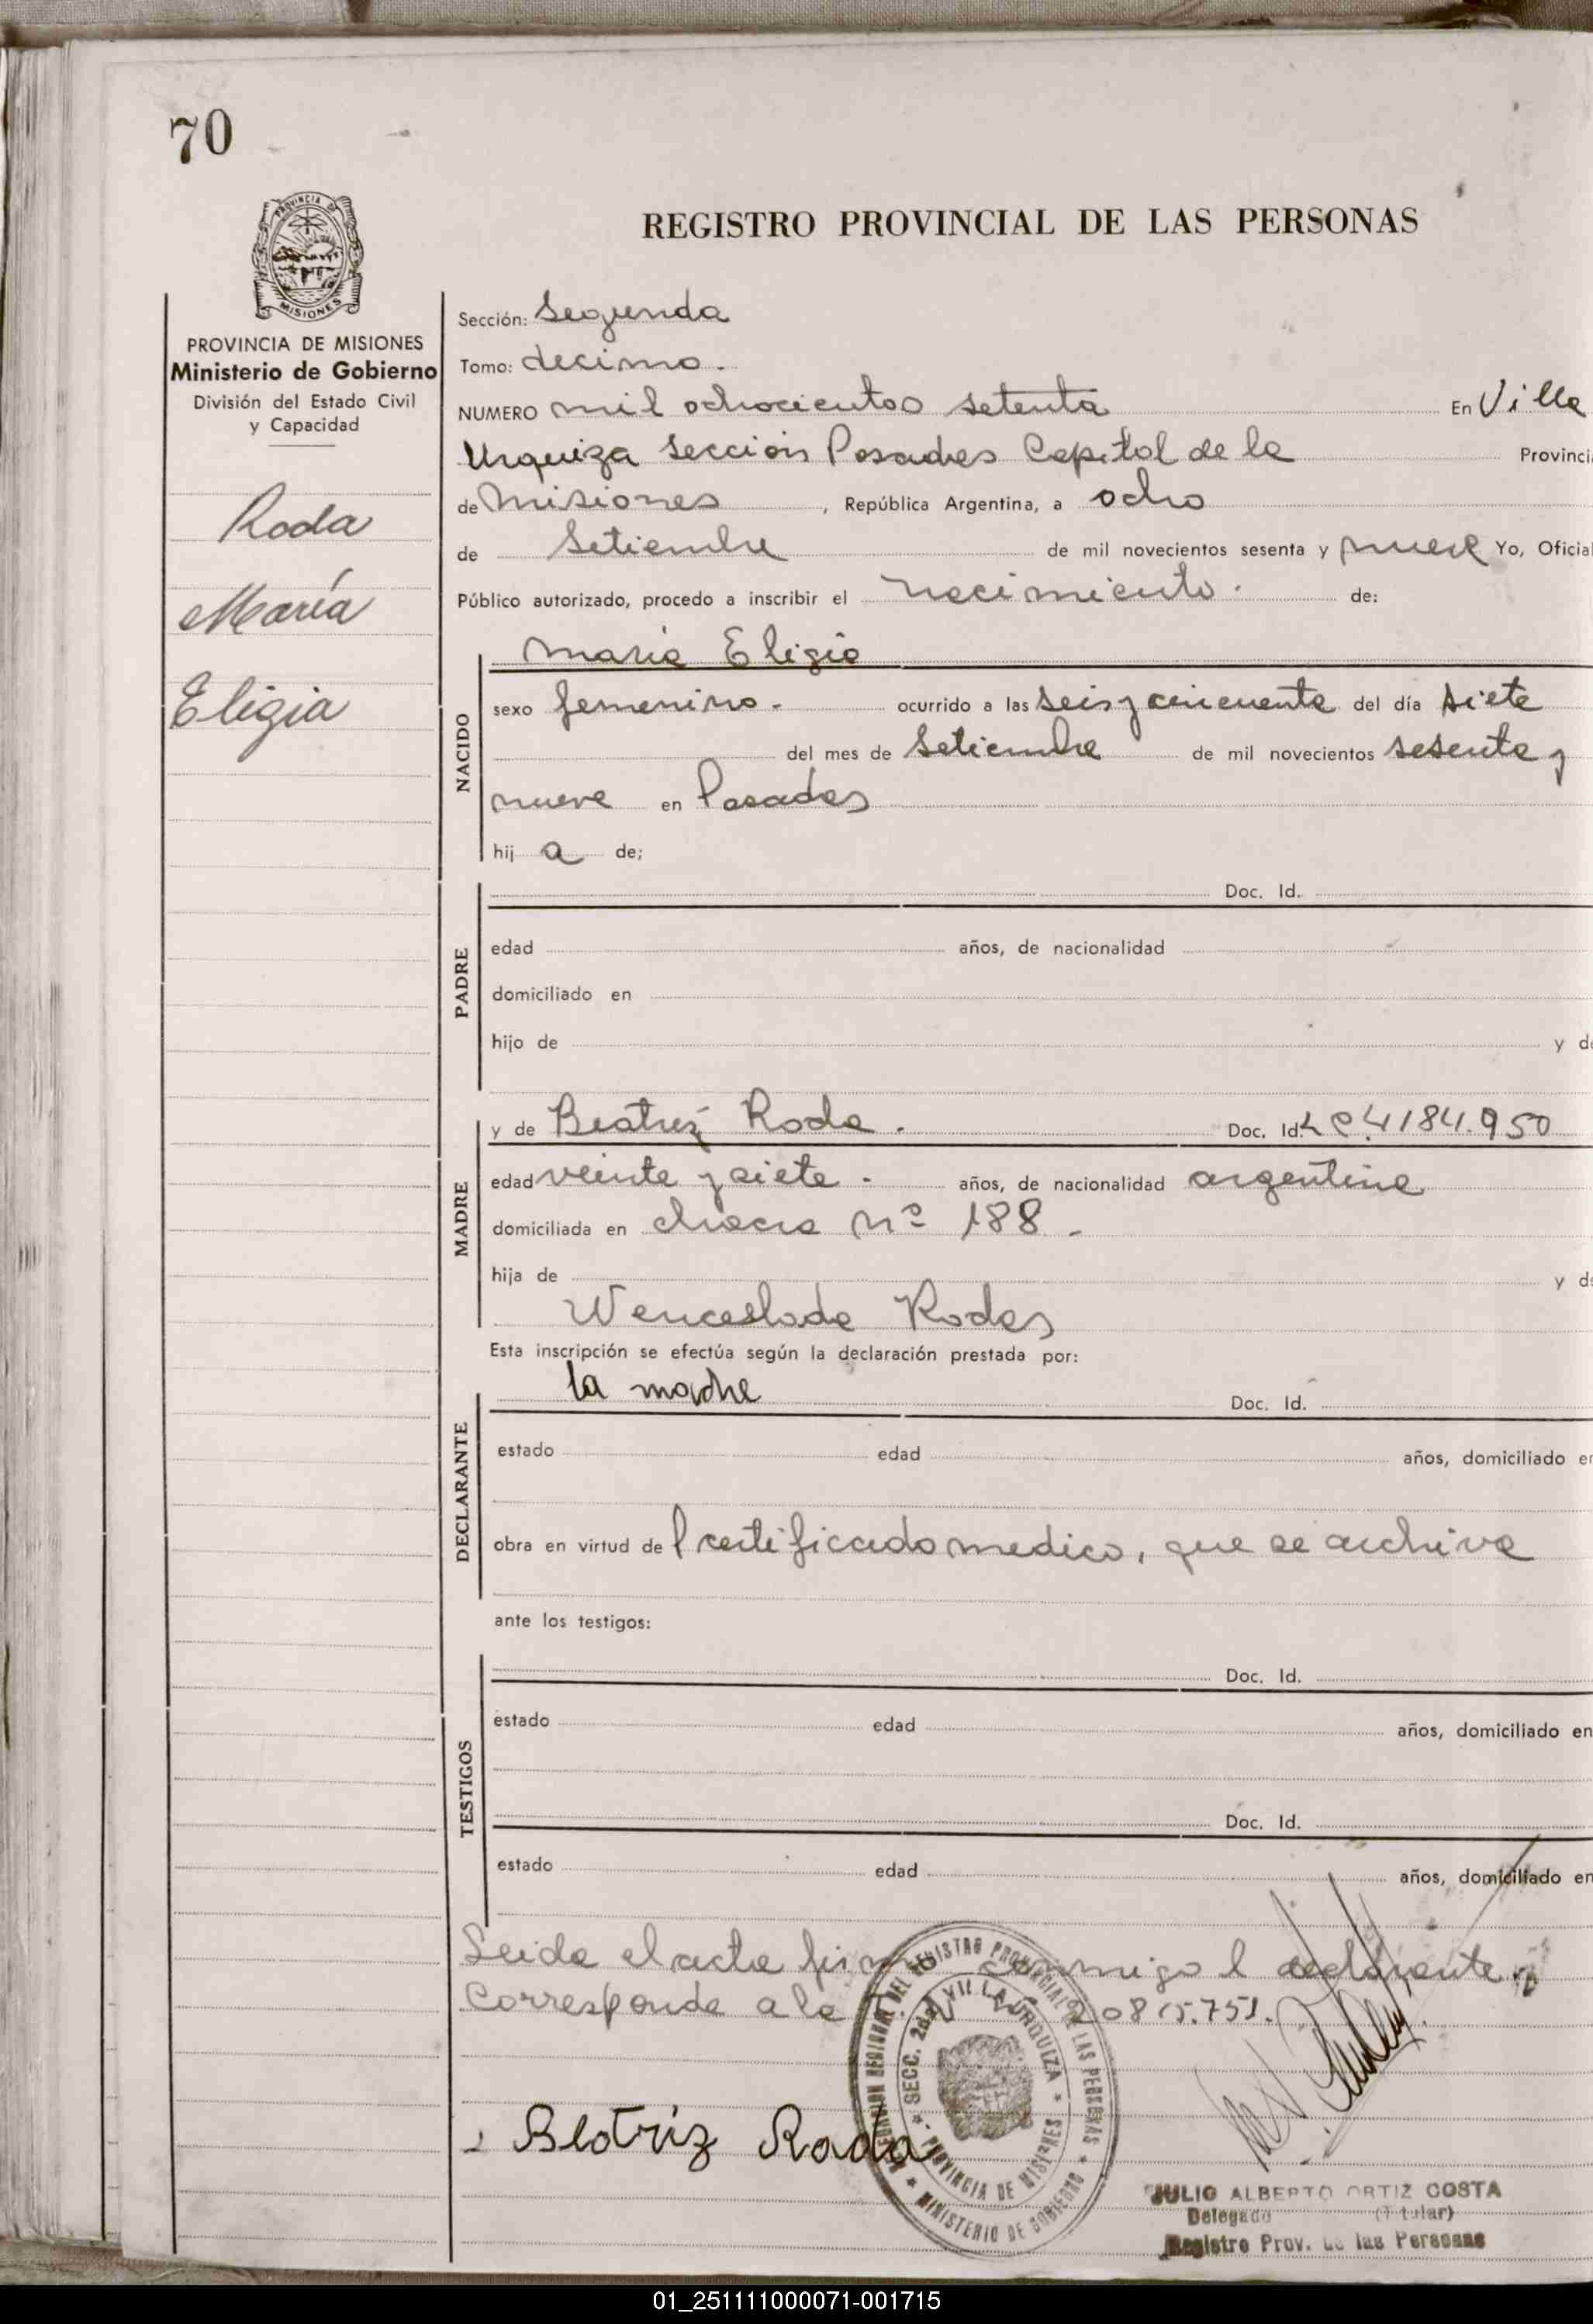 70
PROVINCIA DE
MISIONES
PROVINCIA DE MISIONES
Ministerio de Gobierno
División del Estado Civil
y Capacidad
Roda
María
Eligia
REGISTRO PROVINCIAL DE LAS PERSONAS
Sección: Segunda
Tomo: decimo.
NUMERO mil ochocientos setenta En Villa
Urquiza Sección Posadas Capital de la Provinci
de Misiones, República Argentina, a ocho
de Setiembre de mil novecientos sesenta y nueve Yo, Oficial
Público autorizado, procedo a inscribir el nacimiento. de:
María Eligia
NACIDO
sexo femenino. ocurrido a las seis y cincuenta del día siete
del mes de Setiembre de mil novecientos sesenta y
nueve en Posadas
hij a de;
PADRE
Doc. Id.
edad años, de nacionalidad
domiciliado en
hijo de y de
MADRE
y de Beatriz Roda. Doc. Id. L C 4184.950
edad veinte y siete. años, de nacionalidad argentina
domiciliada en chacra nº 188.
hija de y de
Wenceslada Rodas
Esta inscripción se efectúa según la declaración prestada por:
DECLARANTE
la madre Doc. Id.
estado edad años, domiciliado en
obra en virtud de l certificado medico, que se archiva
ante los testigos:
TESTIGOS
Doc. Id.
estado edad años, domiciliado en
Doc. Id.
estado edad años, domiciliado en
Leida el acta firma conmigo l declarante.
Corresponde a la 20815.751.
DEL REGISTRO PROVINCIAL DE LAS PERSONAS * MINISTERIO DE GOBIERNO *
* SECC. 2da. VILLA URQUIZA * PROVINCIA DE MISIONES
Beatriz Roda
JULIO ALBERTO ORTIZ COSTA
Delegado (Titular)
Registro Prov. de las Personas
01_251111000071-001715